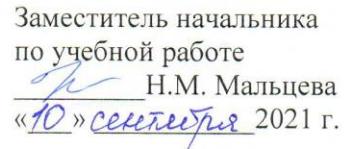 Заместитель начальника
по учебной работе
____________Н.М. Мальцева
«10» сентября 2021 г.